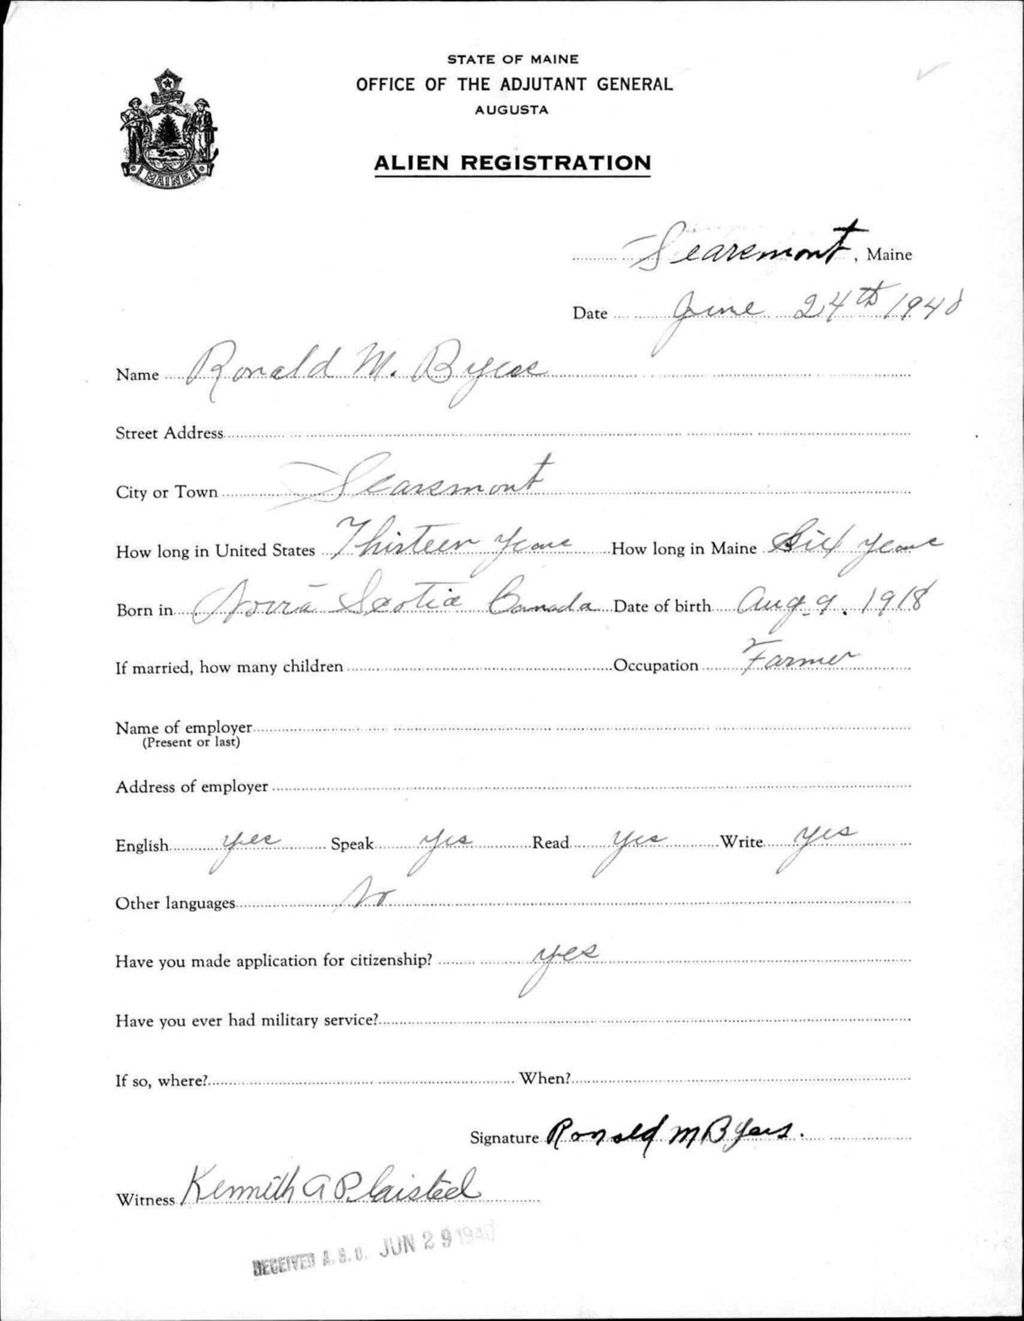 STATE OF MAINE
OFFICE OF THE ADJUTANT GENERAL
AUGUSTA
ALIEN REGISTRATION
MAINE
Searsmont, Maine
Date June 24th 1940
Name Ronald M. Byers
Street Address
City or Town Searsmont
How long in United States Thirteen years How long in Maine Six years
Born in Nova Scotia Canada Date of birth Aug 9. 1918
If married, how many children Occupation Farmer
Name of employer
(Present or last)
Address of employer
English yes Speak yes Read yes Write yes
Other languages No
Have you made application for citizenship? yes
Have you ever had military service?
If so, where? When?
Signature Ronald M Byers.
Witness Kenneth A Plaisted
RECEIVED A.G.O. JUN 29 1940